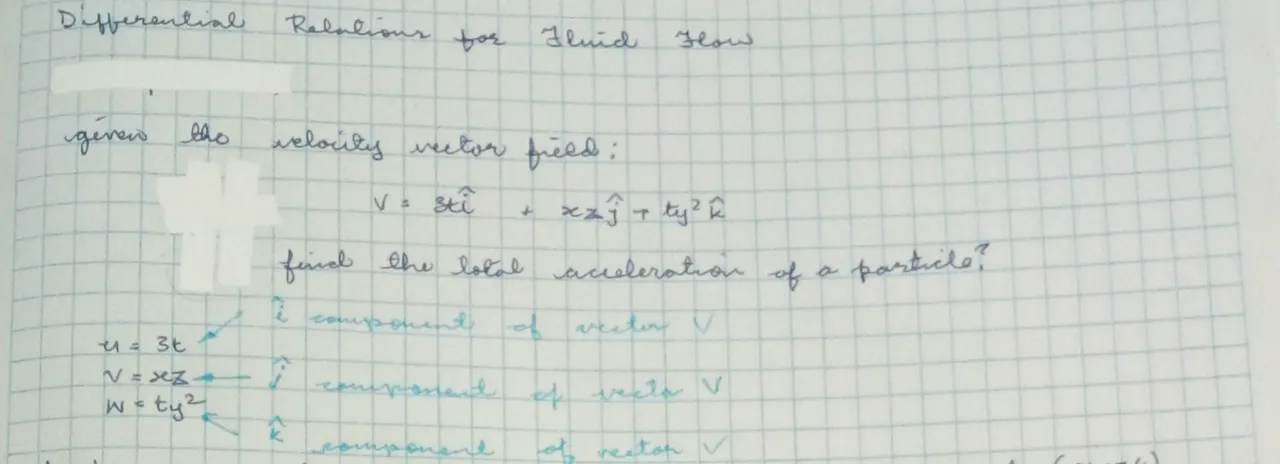 Differential Relations for Fluid Flow
given the velocity vector field:
V = 3tî + xzĵ + ty² k̂
find the total acceleration of a particle?
î component of vector V
u = 3t
V = xz ĵ component of vector V
W = ty²
k̂ component of vector V